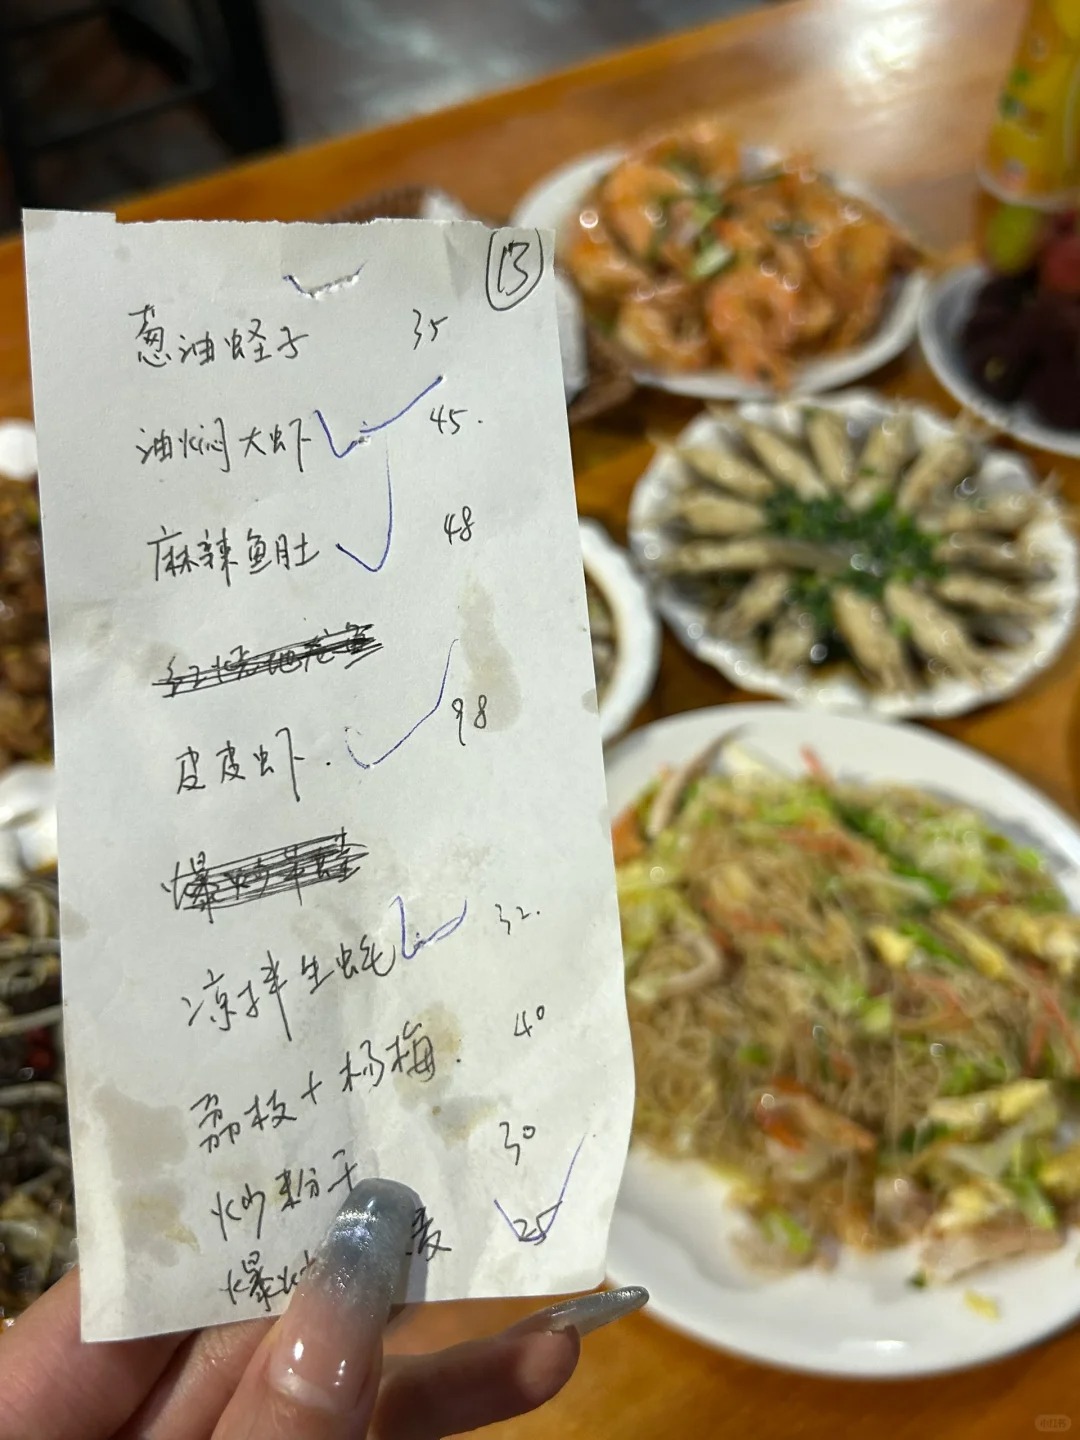 13
葱油蛏子 35
油焖大虾 45.
麻辣鱼肚 48
皮皮虾. 98
凉拌生蚝 32.
荔枝+杨梅. 40
炒粉干 30
爆炒 25